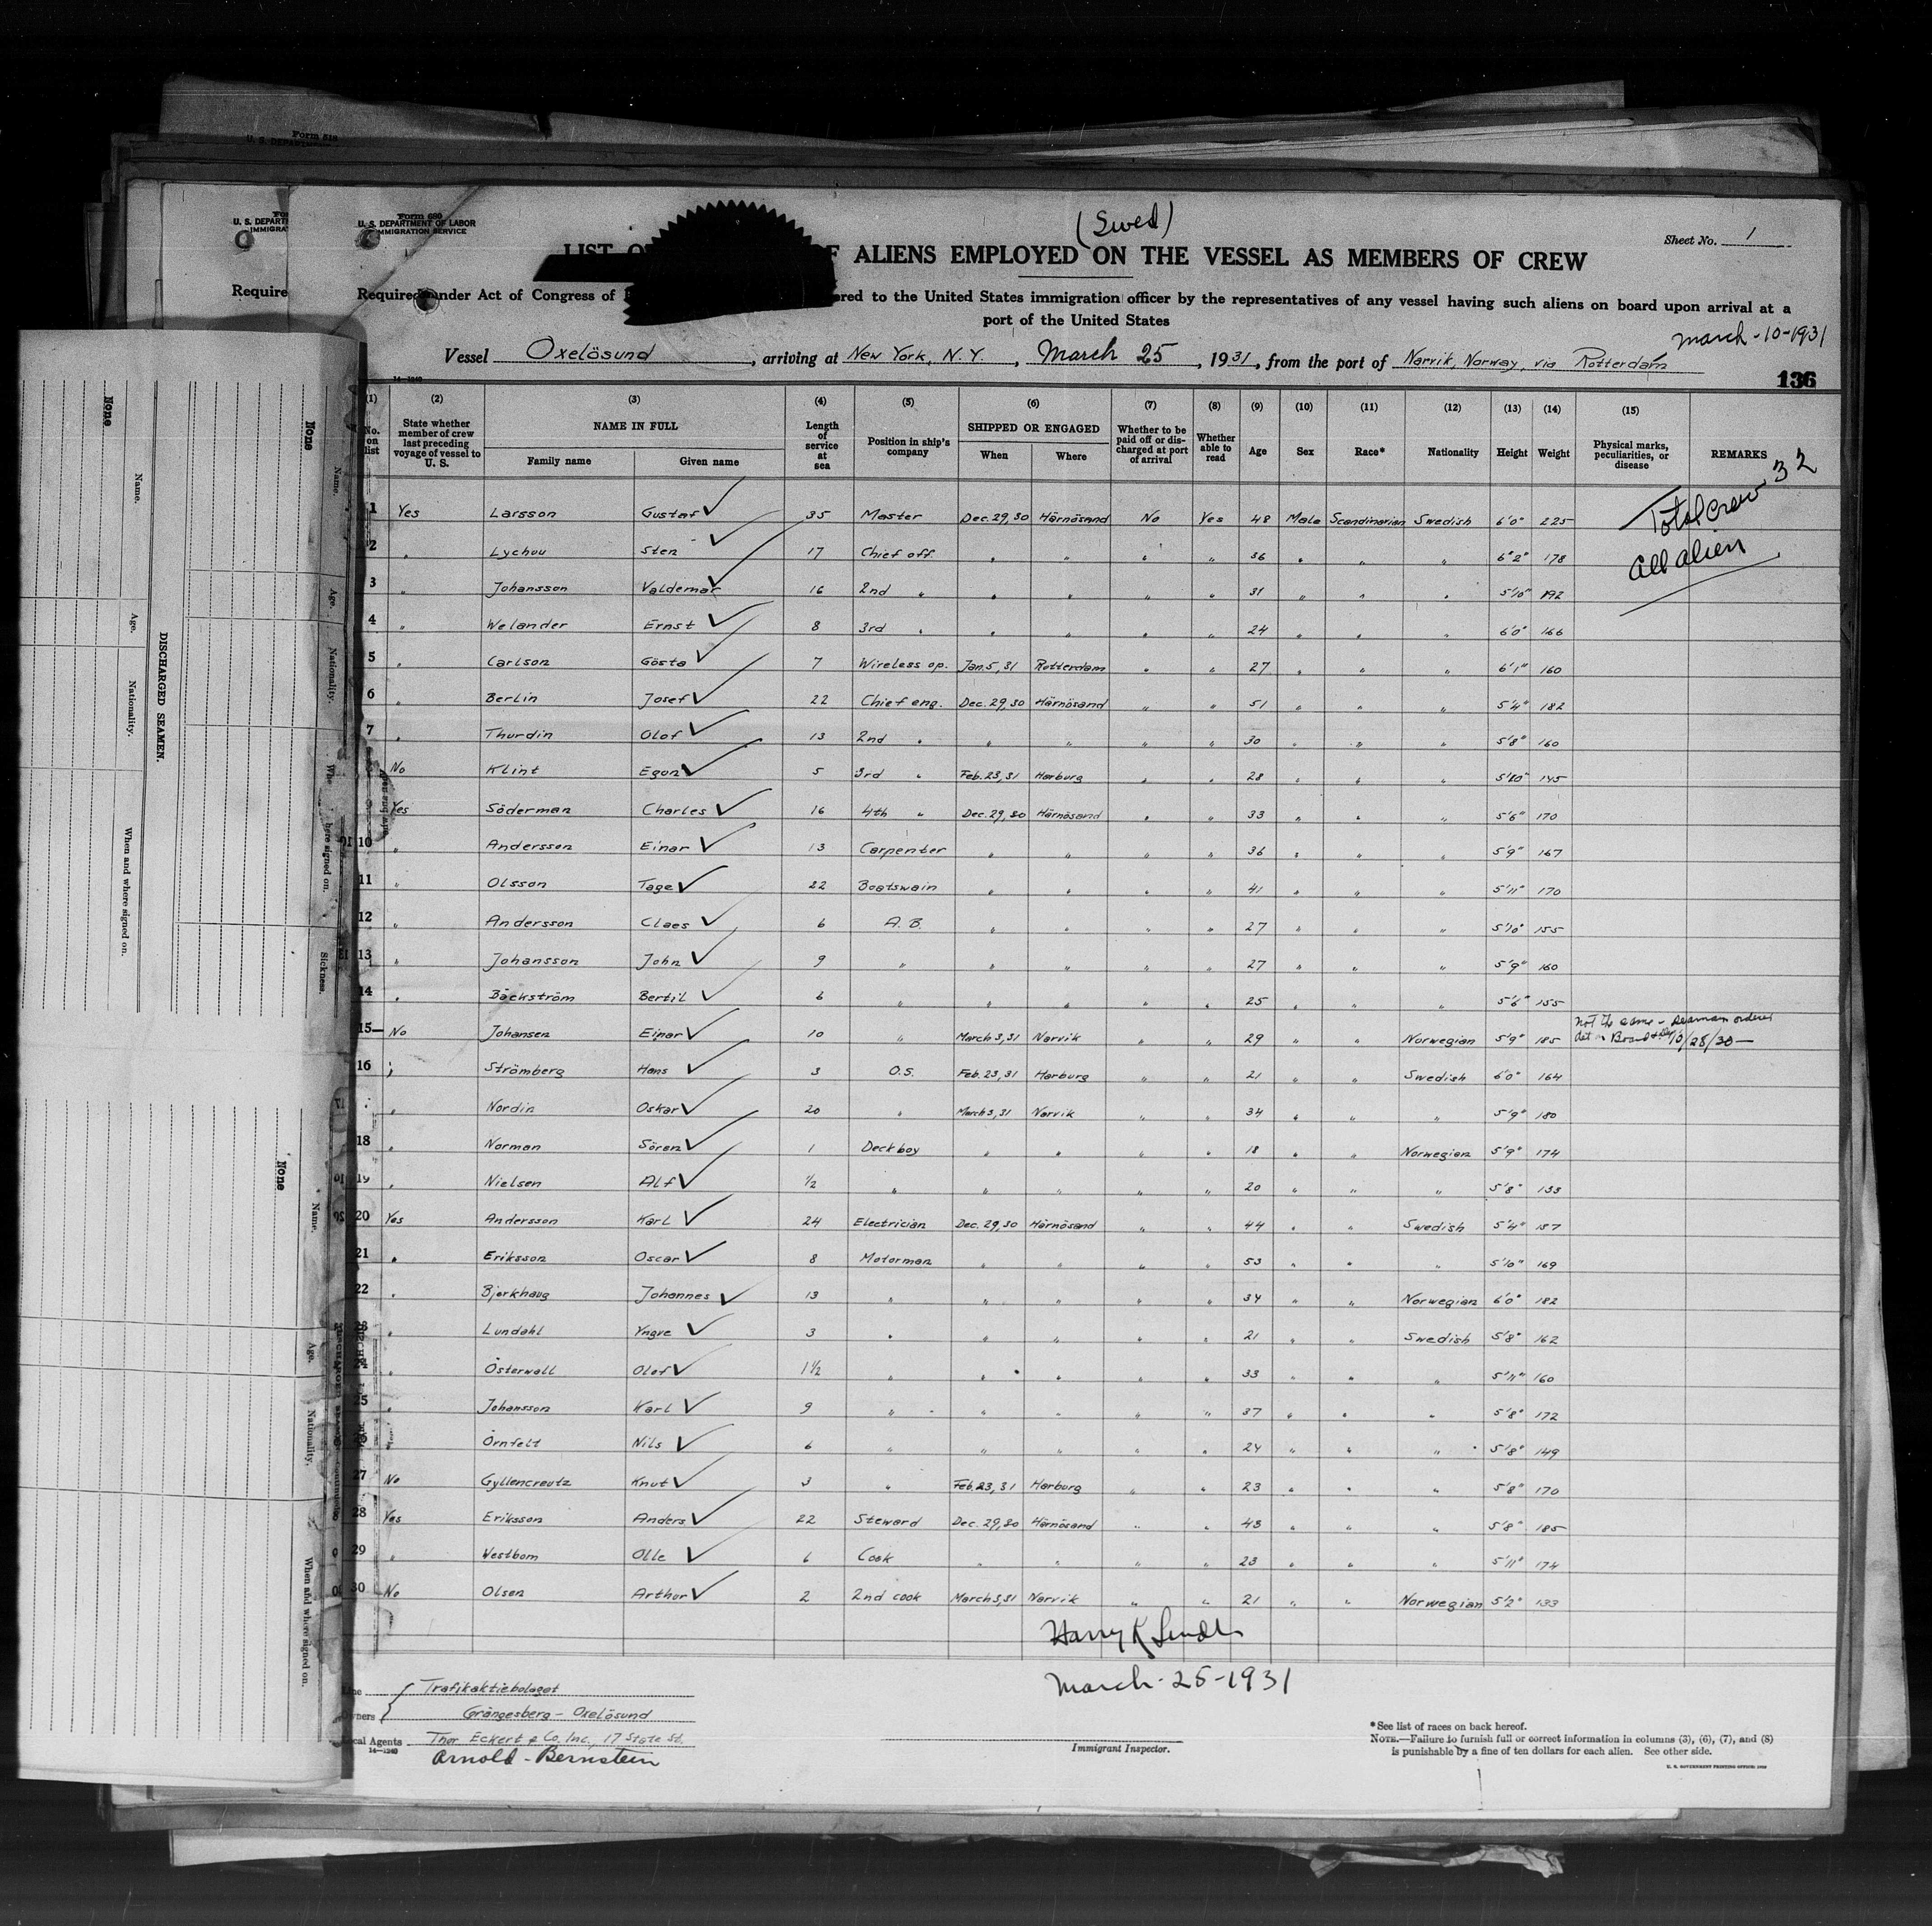 Form 518
U. S. DEPARTMENT
U. S. DEPART
IMMIGRA
Require
Form 680
U. S. DEPARTMENT OF LABOR
IMMIGRATION SERVICE
(Swed)
Sheet No. 1
LIST O F ALIENS EMPLOYED ON THE VESSEL AS MEMBERS OF CREW
Required under Act of Congress of ered to the United States immigration officer by the representatives of any vessel having such aliens on board upon arrival at a
port of the United States
March-10-1931
Vessel Oxelösund, arriving at New York, N.Y., March 25, 1931, from the port of Narvik, Norway, via Rotterdam
14-1240
136
(1) (2) (3) (4) (5) (6) (7) (8) (9) (10) (11) (12) (13) (14) (15)
No. on list State whether member of crew last preceding voyage of vessel to U. S. NAME IN FULL Family name Given name Length of service at sea Position in ship's company SHIPPED OR ENGAGED When Where Whether to be paid off or discharged at port of arrival Whether able to read Age Sex Race* Nationality Height Weight Physical marks, peculiarities, or disease REMARKS
Total crew 32
all alien
1 Yes Larsson Gustaf ✓ 35 Master Dec. 29, 30 Härnösand No Yes 48 Male Scandinavian Swedish 6'0" 225
2 " Lychou Sten ✓ 17 Chief off. " " " " 36 " " " 6'2" 178
3 " Johansson Valdemar ✓ 16 2nd " " " " " 31 " " " 5'10" 192
4 " Welander Ernst ✓ 8 3rd " " " " " 24 " " " 6'0" 166
5 " Carlson Gösta ✓ 7 Wireless op. Jan. 5, 31 Rotterdam " " 27 " " " 6'1" 160
6 " Berlin Josef ✓ 22 Chief eng. Dec. 29, 30 Härnösand " " 51 " " " 5'4" 182
7 " Thurdin Olof ✓ 13 2nd " " " " " 30 " " " 5'8" 160
No Klint Egon ✓ 5 3rd " Feb. 23, 31 Harburg " " 28 " " " 5'10" 145
9 Yes Söderman Charles ✓ 16 4th " Dec. 29, 30 Härnösand " " 33 " " " 5'6" 170
10 " Andersson Einar ✓ 13 Carpenter " " " " 36 " " " 5'9" 167
11 " Olsson Tage ✓ 22 Boatswain " " " " 41 " " " 5'11" 170
12 " Andersson Claes ✓ 6 A. B. " " " " 27 " " " 5'10" 155
13 " Johansson John ✓ 9 " " " " " 27 " " " 5'9" 160
14 " Bäckström Bertil ✓ 6 " " " " " 25 " " " 5'6" 155
15 No Johansen Einar ✓ 10 " March 3, 31 Narvik " " 29 " " Norwegian 5'9" 185 not the same - seaman ordered
det on Board 10/28/30
16 " Strömberg Hans ✓ 3 O.S. Feb. 23, 31 Harburg " " 21 " " Swedish 6'0" 164
" Nordin Oskar ✓ 20 " March 3, 31 Narvik " " 34 " " " 5'9" 180
18 " Norman Sören ✓ 1 Deck boy " " " " 18 " " Norwegian 5'9" 174
19 " Nielsen Alf ✓ 1/2 " " " " " 20 " " " 5'8" 133
20 Yes Andersson Karl ✓ 24 Electrician Dec. 29, 30 Härnösand " " 44 " " Swedish 5'4" 157
21 " Eriksson Oscar ✓ 8 Motorman " " " " 53 " " " 5'10" 169
22 " Bjerkhaug Johannes ✓ 13 " " " " " 34 " " Norwegian 6'0" 182
23 " Lundahl Yngve ✓ 3 " " " " " 21 " " Swedish 5'8" 162
24 " Österwall Olof ✓ 1 1/2 " " " " " 33 " " " 5'11" 160
25 " Johansson Karl ✓ 9 " " " " " 37 " " " 5'8" 172
26 " Örnfelt Nils ✓ 6 " " " " " 24 " " " 5'8" 149
27 No Gyllencreutz Knut ✓ 3 " Feb. 23, 31 Harburg " " 23 " " " 5'8" 170
28 Yes Eriksson Anders ✓ 22 Steward Dec. 29, 30 Härnösand " " 43 " " " 5'8" 185
29 " Westbom Olle ✓ 6 Cook " " " " 23 " " " 5'11" 174
30 No Olsen Arthor ✓ 2 2nd cook March 3, 31 Narvik " " 21 " " Norwegian 5'2" 133
March-25-1931
Line Trafikaktiebolaget
Owners Grängesberg - Oxelösund
Local Agents Thor Eckert & Co, Inc., 17 State St.
14-1240
Arnold-Bernstein
Immigrant Inspector.
*See list of races on back hereof.
NOTE.—Failure to furnish full or correct information in columns (3), (6), (7), and (8)
is punishable by a fine of ten dollars for each alien. See other side.
U. S. GOVERNMENT PRINTING OFFICE
DISCHARGED SEAMEN.
None
Name.
Age.
Nationality.
When and where signed on.
None
Name.
Age.
Nationality.
here signed on.
Sickness.
None
Name.
Age.
Nationality.
When and where signed on.